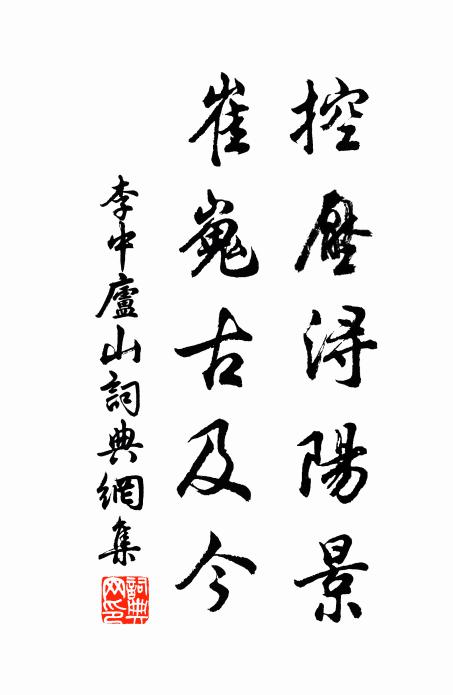 控壓潯陽景
崔嵬古及今
李中廬山詞典網集
詞典網印